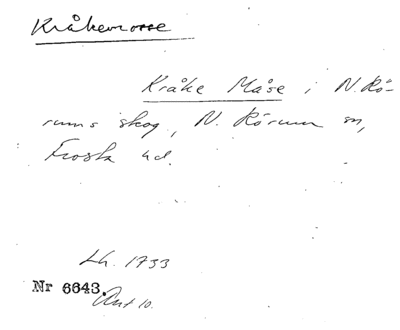 Kråkemosse
Kråke Måse i N. Rö-
rums skog, N. Rörum sn,
Frosta hd.
Lh. 1733
Nr 6643.
Akt 10.